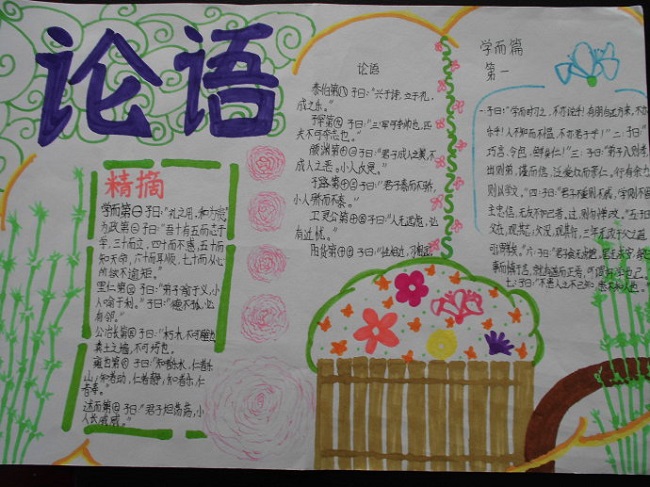 论语
精摘
学而第一 子曰:"礼之用,和为贵
为政第二 子曰:"吾十有五而志于
学,三十而立,四十而不惑,五十而
知天命,六十而耳顺,七十而从心
所欲不逾矩。"
里仁第四 子曰:"君子喻于义,小
人喻于利。" 子曰:"德不孤,必
有邻。"
公冶长第五 子曰:"朽木不可雕也
粪土之墙,不可杇也。
雍也第六 子曰:"知者乐水,仁者乐
山;知者动,仁者静;知者乐,仁
者寿。"
述而第七 子曰:"君子坦荡荡,小
人长戚戚。"
论语
泰伯第八 子曰:"兴于诗,立于礼,
成之乐。"
子罕第九 子曰:"三军可夺帅也,匹
夫不可夺志也。"
颜渊第十二 子曰:"君子成人之美,不
成人之恶。小人反是。"
子路第十三 子曰:"君子泰而不骄,
小人骄而不泰。"
卫灵公第十五 子曰:"人无远虑,必
有近忧。"
阳货第十七 子曰:"性相近,习相远
学而篇
第一
一·子曰:"学而时习之,不亦说乎!有朋自远方来,不亦
乐乎!人不知而不愠,不亦君子乎!"二:子曰:"
巧言,令色,鲜矣仁!"三:子曰:"弟子入则孝,
出则弟,谨而信,泛爱众而亲仁。行有余力
则以学文。"四:子曰:"君子不重则不威,学则不固
主忠信,无友不如己者,过,则勿惮改。"五:子曰
父在,观其志;父没,观其行;三年无改于父之道
可谓孝矣。"六:子曰:"君子食无求饱,居无求安,敏于
事而慎于言,就有道而正焉,可谓好学也已
七:子曰:"不患人之不己知,患不知人也。"